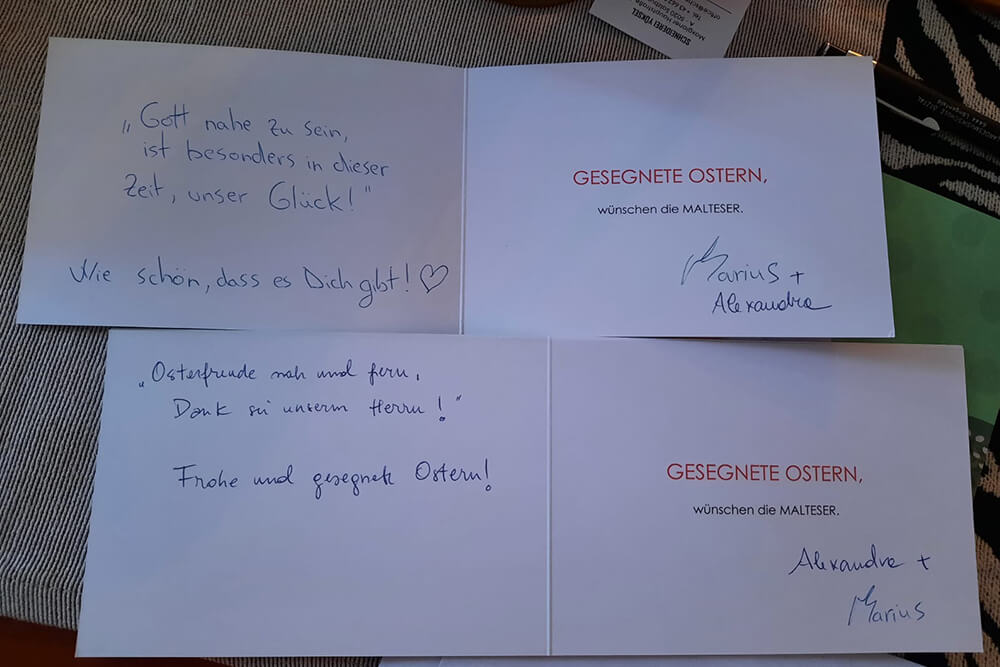 SCHNEIDEREI YÜKSEL
„Gott nahe zu sein,
ist besonders in dieser
Zeit, unser Glück!"
Wie schön, dass es Dich gibt! ♡
GESEGNETE OSTERN,
wünschen die MALTESER.
Marius +
Alexandra
„Osterfreude nah und fern,
Dank sei unserm Herrn!"
Frohe und gesegnete Ostern!
GESEGNETE OSTERN,
wünschen die MALTESER.
Alexandra +
Marius